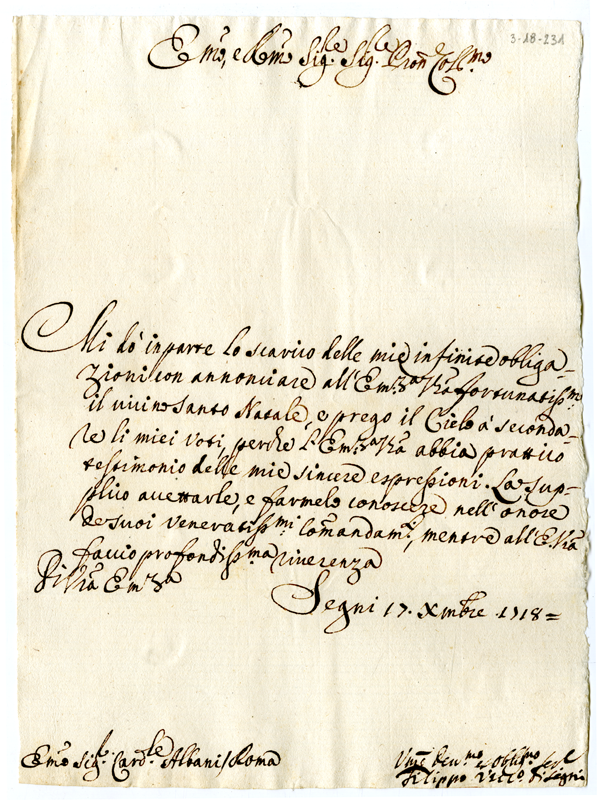 3-18-231
Emo, e Rmo Sigre Sigre Pron Collmo
Mi dò in parte lo scarico delle mie infinite obliga-
zioni con annonciare all'Emza Vra fortunatissmo
il vicino Santo Natale, e prego il Cielo à seconda-
re li miei voti, perche l'Emza Vra abbia prattico
testimonio delle mie sincere espressioni. La sup-
plico accettarle, e farmelo conoscere nell'onore
de suoi veneratissmi Comandamti, mentre all'E. Vra
faccio profondissma riverenza
Di Vra Emza
Segni 17. Xmbre 1718=
Emo Sigre Cardle Albani / Roma
Vme Devmo et obligmo Serre
Filippo Vescо di Segni